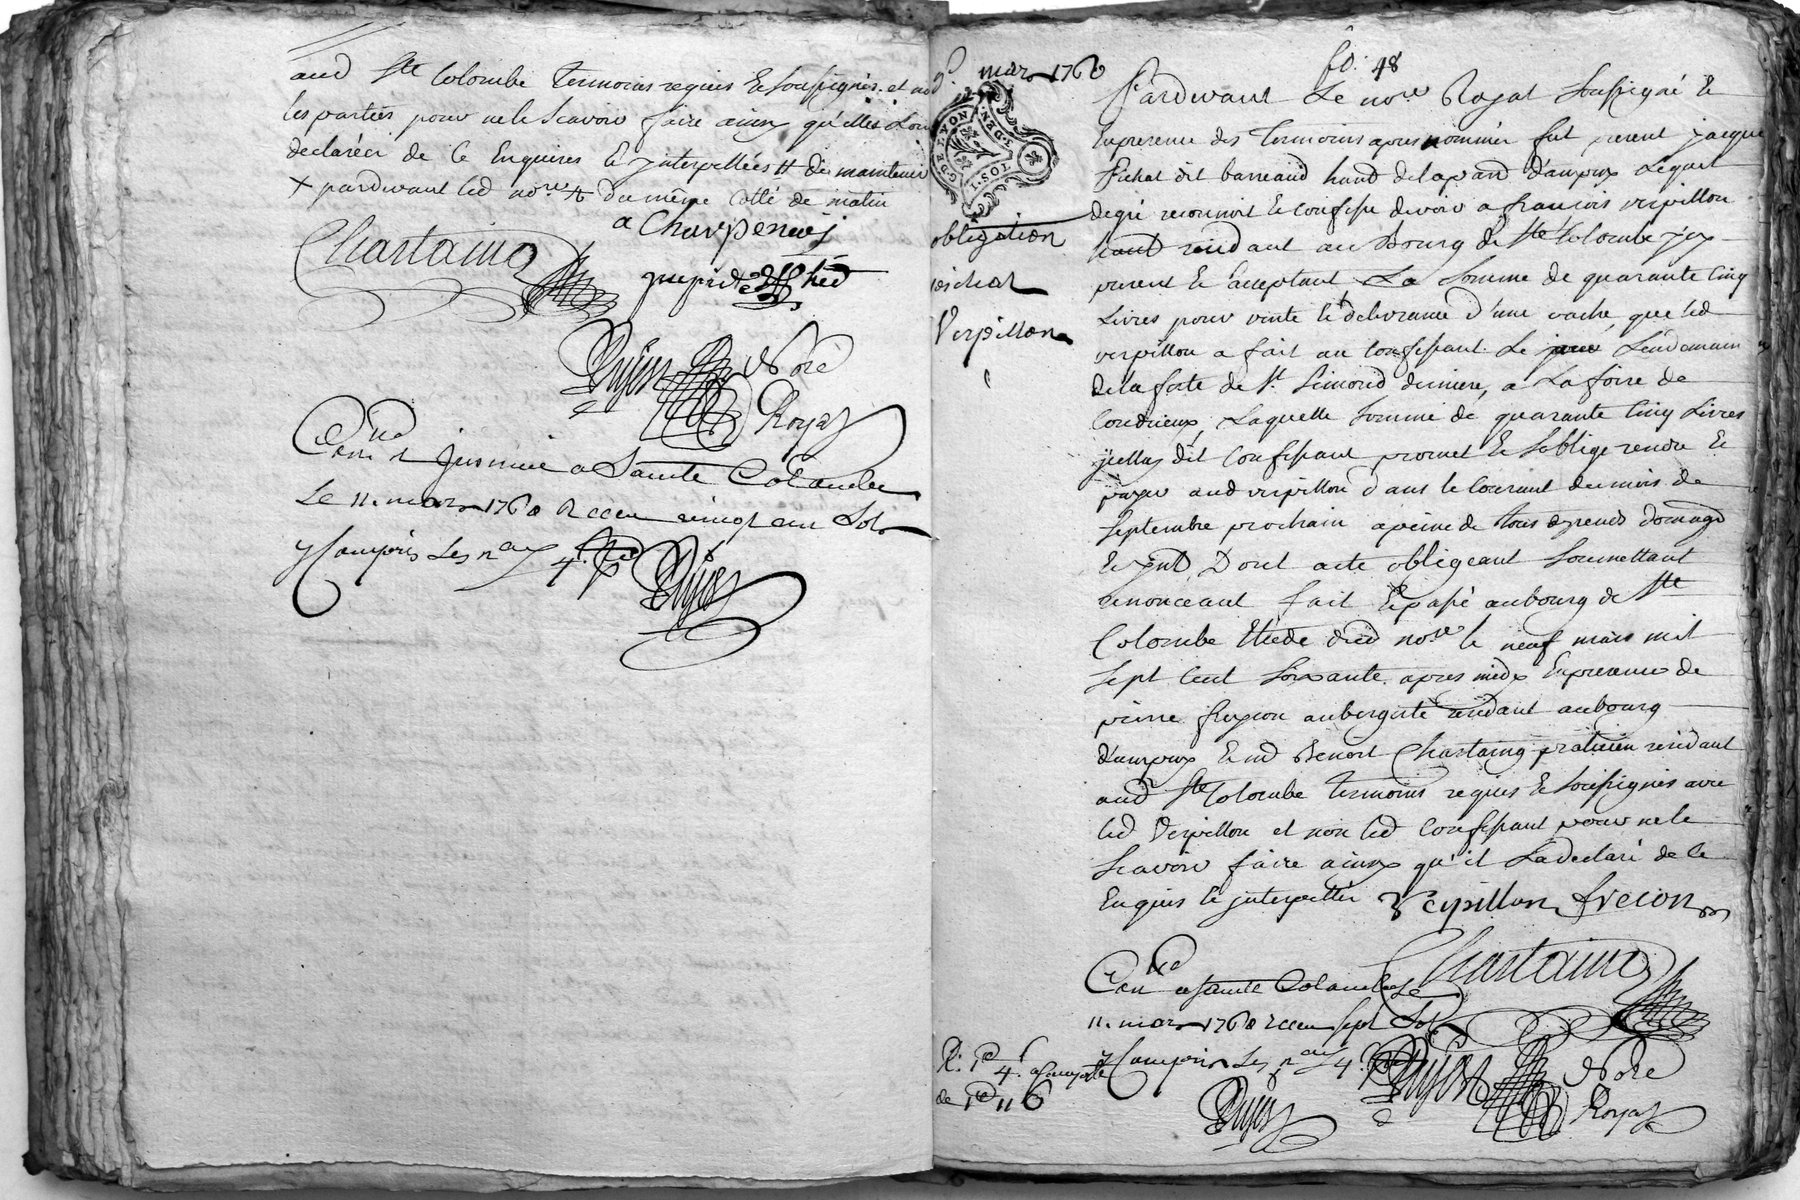 aud Ste Colombe temoins requis et soussignés. et non
les parties pour ne le scavoir faire ainsy qu'elles lon
declaréés de ce enquises et jnterpellées # de maintenir
+ pardevant led nore # du même cotté de matin
a Charpenay
Chastaing
Dujast Nore
Royal
Con lé & jnsinué a Sainte Colombe
Le 11. mars 1760 Receu vingt un Sols
y Compris Les nx 4. pd
Dujast
9 mars 1760
fo. 48
G. DE LYON
GEN.
1. SOL
obligation
pichat
Verpillon
Pardevant Le nore Royal soussigné et
Enpresence des temoins apres nommés fut present jacque
pichat dit barreaud hand delapard d'ampuis Lequel
degré reconnoit et confesse devoir a francois verpillon
hand residant au Bourg de Ste Colombe jcy
present et acceptant La somme de quarante cinq
Livres pour vente et delivrance d'une vache, que led
verpillon a fait au confessant Le Lendemain
dela feste de St Simond derniere, a La foire de
Condrieux, Laquelle somme de quarante cinq Livres
jcelluy dit confessant promet et soblige rendre et
payer aud verpillon dans le courant du mois de
septembre prochain a peine de tous depends domage
et jnts Dont acte obligeant soumettant
renonceant fait et passé au bourg de Ste
Colombe Etude dud nore le neuf mars mil
sept cent soixante apres midy Enpresence de
pierre freycon aubergiste residant au bourg
d'ampuis et md Benoit Chastaing praticien residant
aud Ste Colombe temoins requis et soussignés avec
led Verpillon et non led confessant pour ne le
scavoir faire ainsy qu'il La declaré de ce
Enquis et jnterpellé Verpillon frecon
Chastaing
Con lé a Sainte Colombe Le
11. mars 1760 Receu sept Sols
y Compris Les nx 4. pd
Dujast Nore
Royal
Dujast
R. pd 4. acompte
de pd 11 6